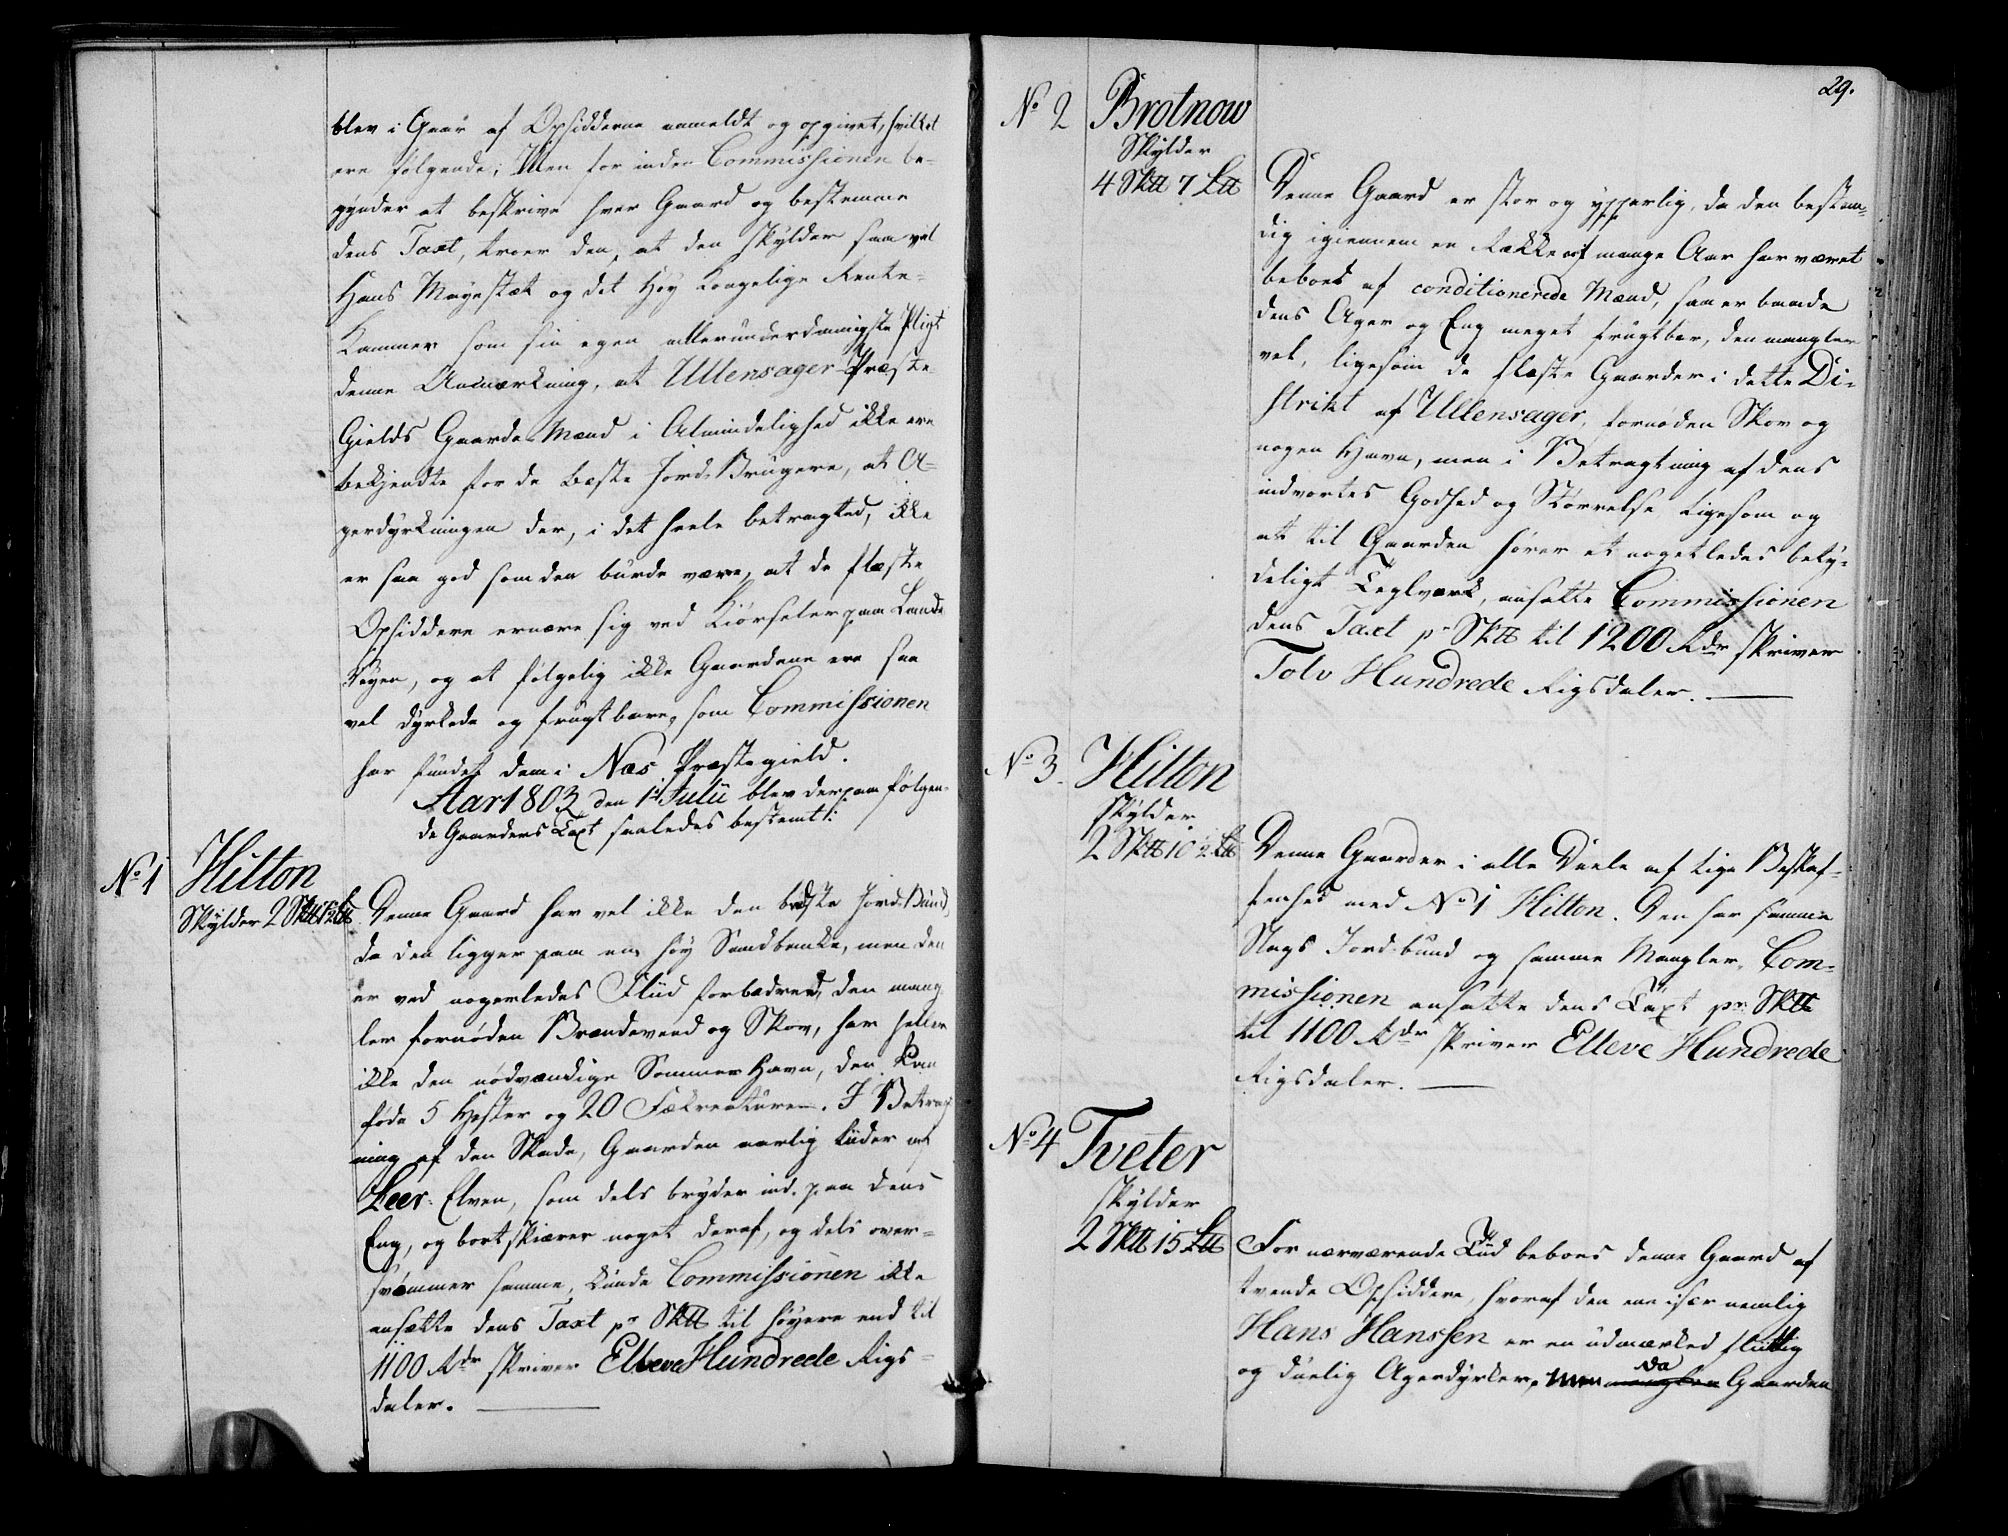 blev i Gaar af Opsidderne anmeldt og opgivet, hvilket
ere følgende; Men forinden Commissionen be-
gynder at beskrive hver Gaard og bestemme
dens Taxt, troer den, at den skylder saavel
Hans Mayestæt og det Høy Kongelige Rente-
Kammer som sin egen allerunderdanigste Pligt
denne Anmærkning, at Ullensager Præste
Gields Gaarde Mænd i Almindelighed ikke ere
bekjendte for de bæste Jord-Brugere, at A-
gerdyrkningen der, i det heele betragted, ikke
er saa god som den burde være, at de flæste
Opsiddere ernære sig ved Kiørseler paa Lande
Veyen, og at følgelig ikke Gaardene ere saa
vel dyrkede og frugtbare, som Commissionen
har fundet dem i Næs Præstegield.
Aar 1803 den 1t Julii blev derpaa følgen-
de Gaarders Taxt saaledes bestemt:
No 1
Hilton
Skylder 2 Sk℔
Denne Gaard har vel ikke den bædste Jord-Bund,
da den ligger paa en høy Sandbanke, men den
er ved nogenledes Flüd forbædred, den mang-
ler fornøden Brændeveed og Skov, har heller
ikke den nødvændige Sommer Havn, den kan
føde 5 Hester og 20 Fækreaturer. I Betragt
ning af den Skade, Gaarden aarlig lider af
Leer-Elven, som dels bryder ind paa dens
Eng, og bortskiærer noget deraf, og dels over-
svømmer samme, kunde Commissionen ikke
ansætte dens Taxt pr Sk℔ til høyere end til
1100 Rdr skriver Elleve Hundrede Rigs-
daler.
29.
No 2
Brotnow
Skylder
4 Sk℔ 7 L℔
Denne Gaard er stor og ypperlig, da den bestæn-
dig igiennem en Række af mange Aar har været
beboet af conditionerede Mænd, saa er baade
dens Ager og Eng meget frugtbar, den mangler
vel, ligesom de flæste Gaarder i dette Di-
strikt af Ullensager, fornøden Skov og
nogen Havn, men i Betragtning af dens
indvortes Godhed og Størrelse ligesom og
at til Gaarden hører et nogenledes bety-
deligt Teglværk, ansatte Commissionen
dens Taxt pr Sk℔ til 1200 Rdr skriver
Tolv Hundrede Rigsdaler.
No 3
Hilton
skylder
2 Sk℔ 10½ L℔
Denne Gaard er i alle Deele af lige Beskaf-
fenhed med No 1 Hilton. Den har samme
Slags Jord-bund og samme Mangler. Com-
missionen ansatte dens Taxt pr Sk℔
til 1100 Rdr skriver Elleve Hundrede
Rigsdaler.
No 4
Tveter
skylder
2 Sk℔ 15 L℔
For nærværende Tiid beboes denne Gaard af
tvende Opsiddere, hvoraf den ene især nemlig
Hans Hanssen er en udmærked flittig
og duelig Agerdyrker, men manglen da Gaarden